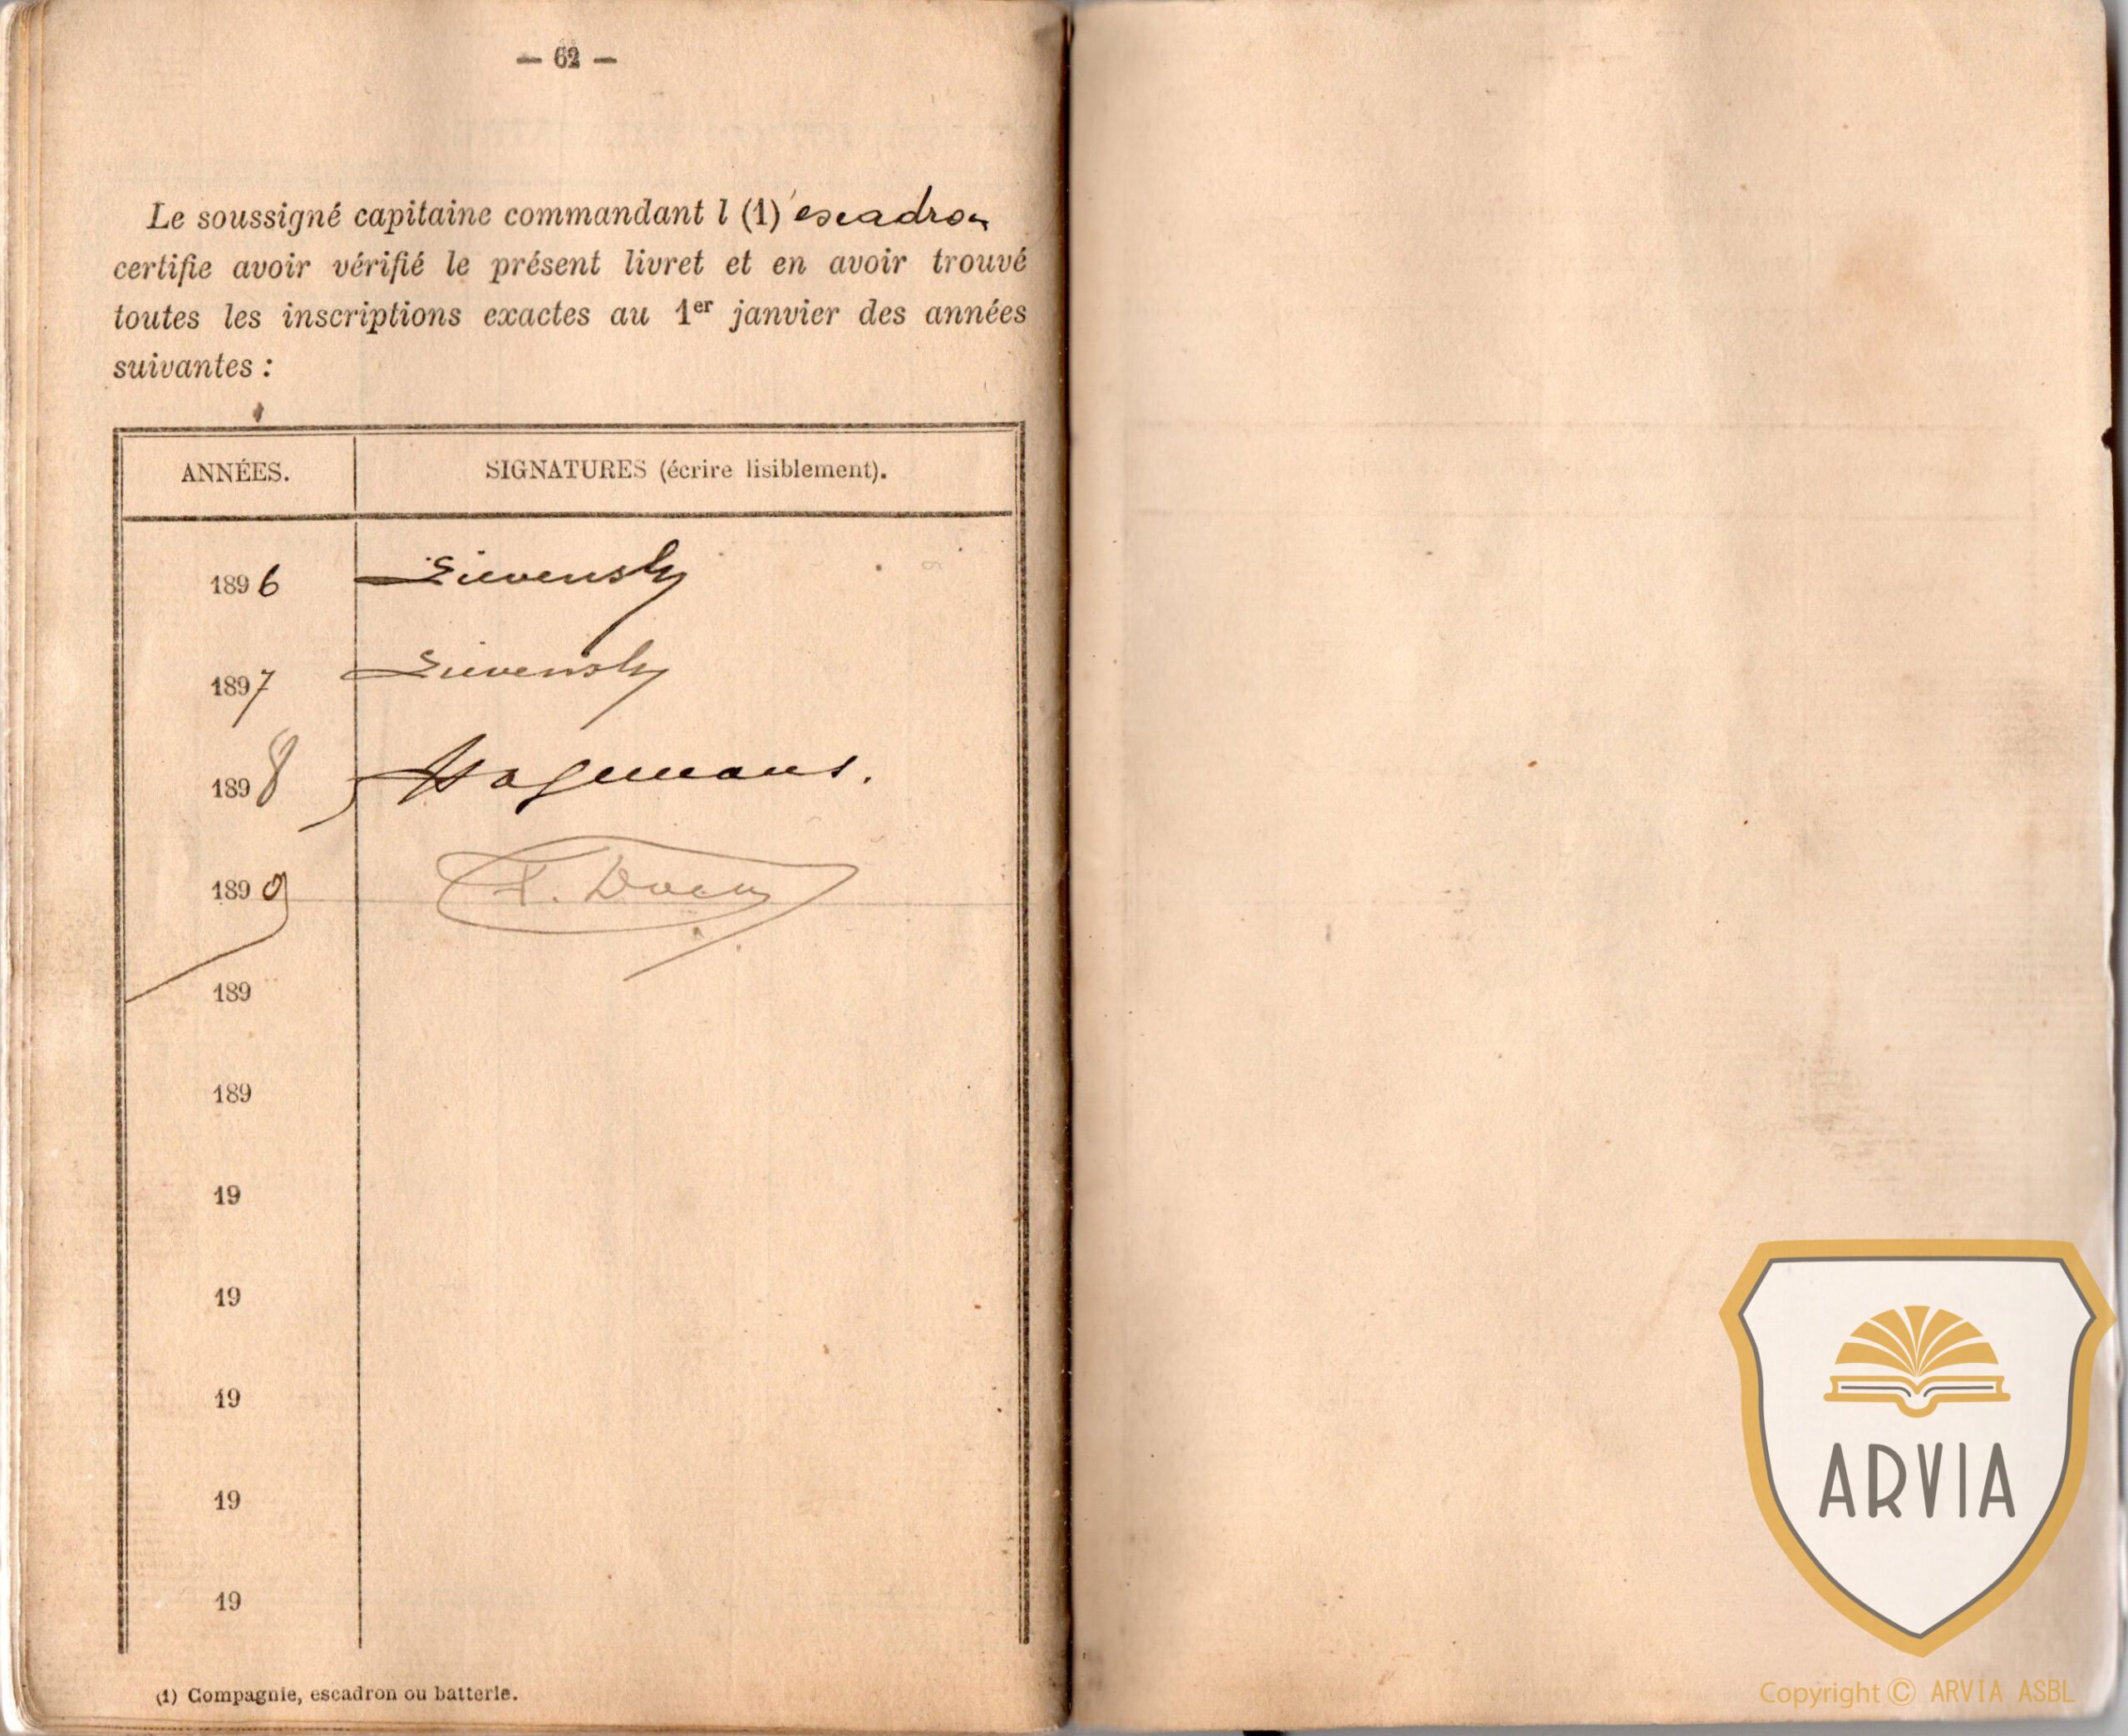 — 62 —
Le soussigné capitaine commandant l (1) escadron
certifie avoir vérifié le présent livret et en avoir trouvé
toutes les inscriptions exactes au 1er janvier des années
suivantes :
ANNÉES. SIGNATURES (écrire lisiblement).
1896
1897
1898 Hagemans.
1899
189
189
19
19
19
19
19
(1) Compagnie, escadron ou batterie.
ARVIA
Copyright © ARVIA ASBL